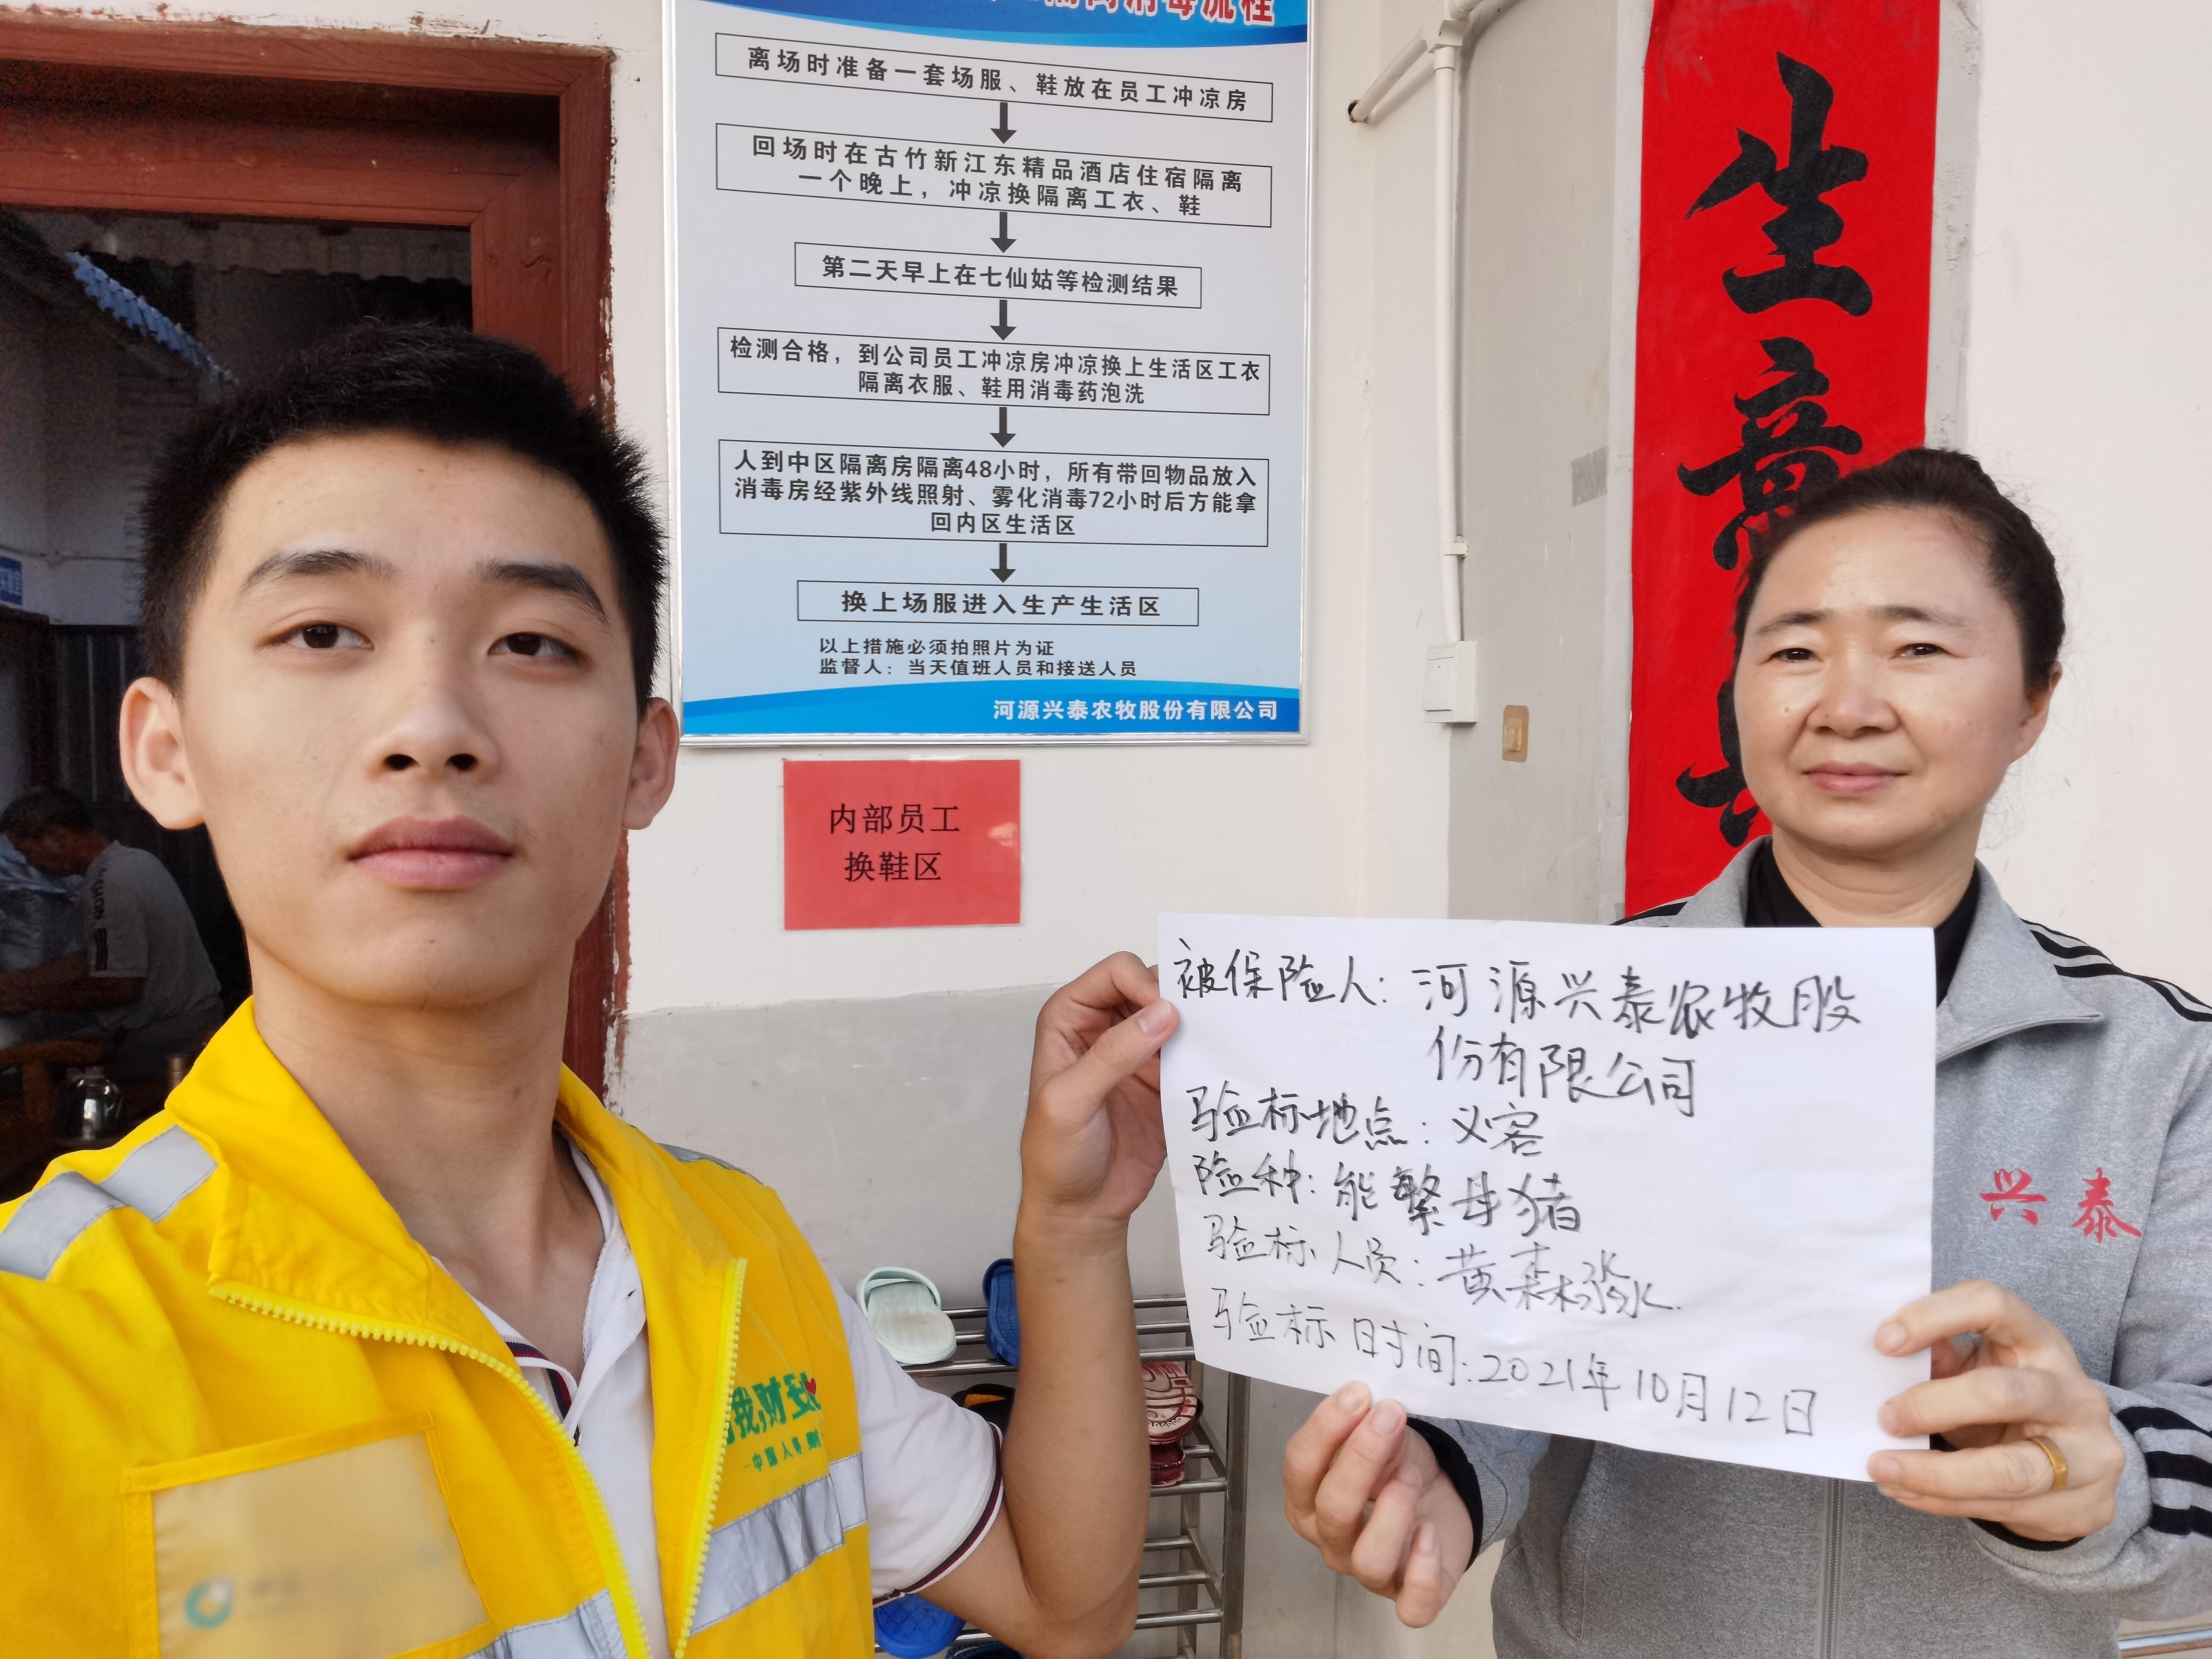 隔离消毒流程
离场时准备一套场服、鞋放在员工冲凉房
回场时在古竹新江东精品酒店住宿隔离
一个晚上，冲凉换隔离工衣、鞋
第二天早上在七仙姑等检测结果
检测合格，到公司员工冲凉房冲凉换上生活区工衣
隔离衣服、鞋用消毒药泡洗
人到中区隔离房隔离48小时，所有带回物品放入
消毒房经紫外线照射、雾化消毒72小时后方能拿
回内区生活区
换上场服进入生产生活区
以上措施必须拍照片为证
监督人：当天值班人员和接送人员
河源兴泰农牧股份有限公司
内部员工
换鞋区
生意兴
被保险人：河源兴泰农牧股
份有限公司
验标地点：义容
险种：能繁母猪
验标人员：黄森淼
验标时间：2021年10月12日
兴泰
我财
中国人